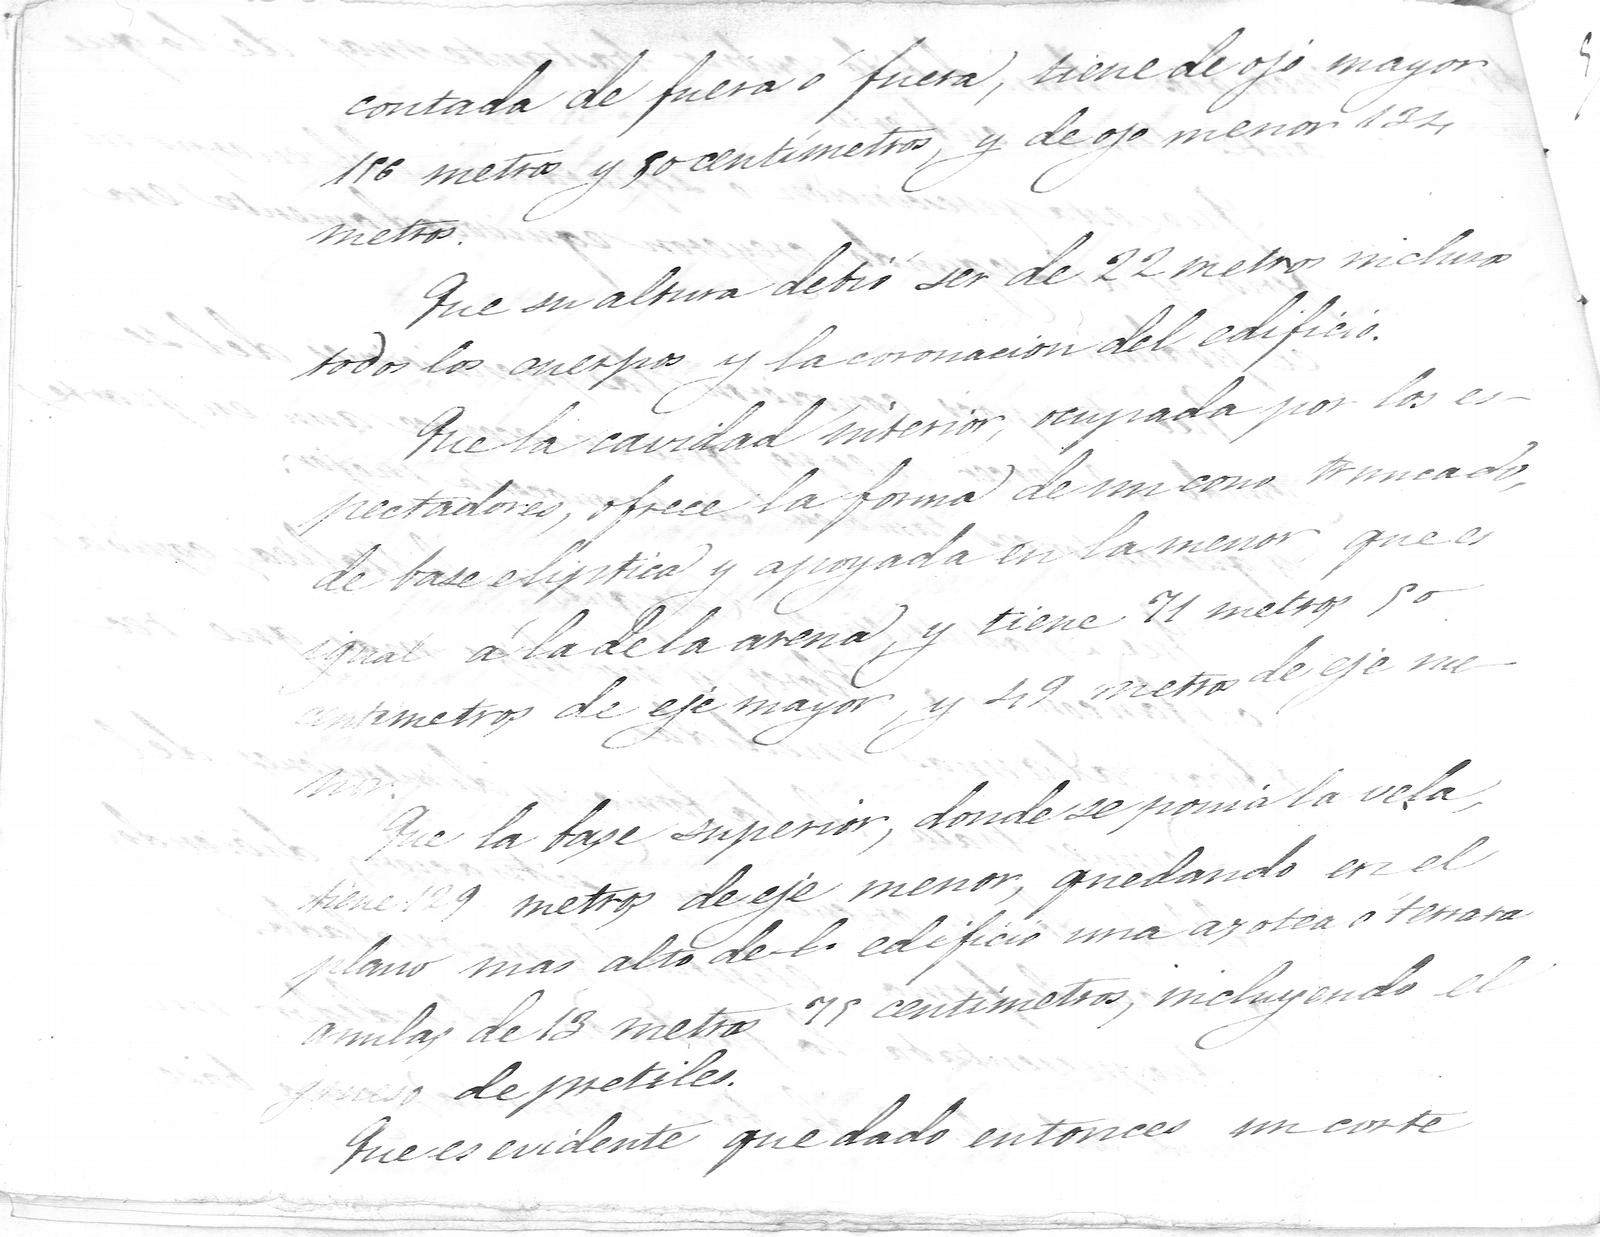 contada de fuera ó fuera, tiene de ojo mayor
156 metros y 50 centímetros, y de ojo menor 134
metros.
Que su altura debió ser de 22 metros inclusos
todos los cuerpos y la coronacion del edificio.
Que la cavidad interior, ocupada por los es-
pectadores, ofrece la forma de un cono truncado,
de base elíptica y apoyada en la menor que es
igual á la de la arena, y tiene 71 metros 50
centimetros de eje mayor, y 49 metros de eje me-
nor.
Que la base superior, donde se ponia la vela,
tiene 129 metros de eje menor, quedando en el
plano mas alto del edificio una azotea ó terraza
anular de 13 metros 75 centímetros, incluyendo el
grueso de pretiles.
Que es evidente que dado entonces un corte